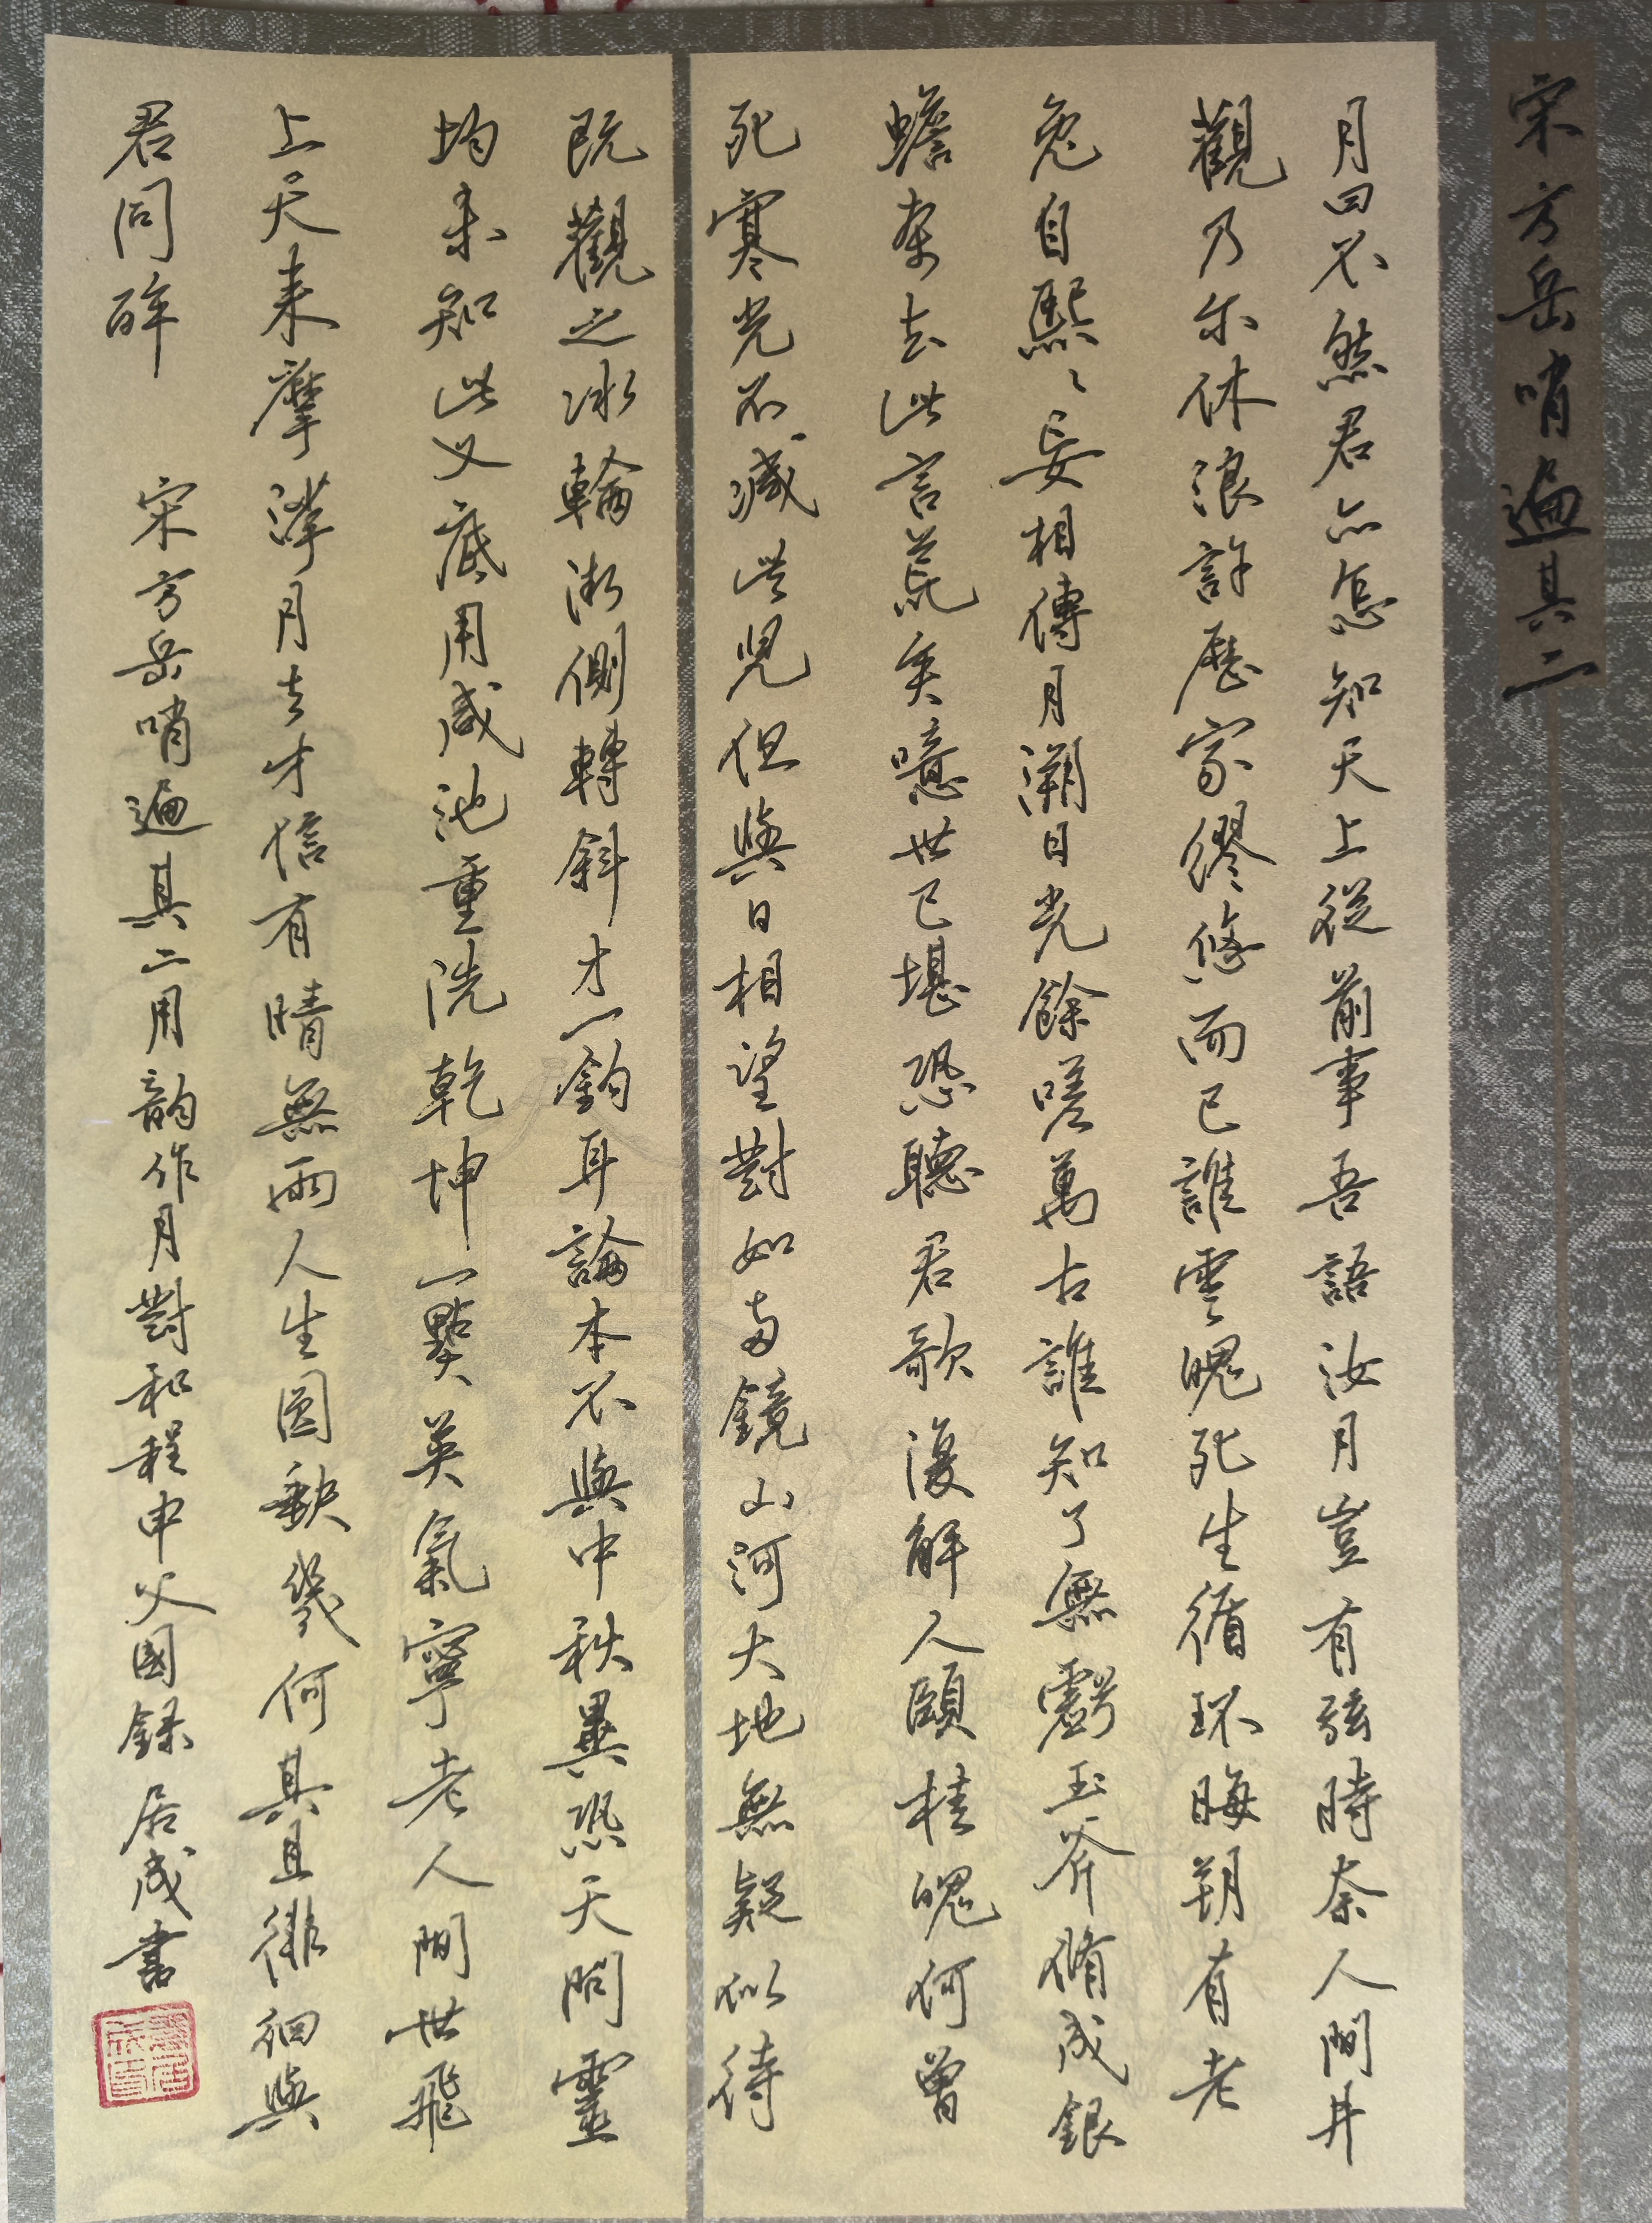 宋方岳哨遍其二
月曰不然君亦怎知天上從前事吾語汝月豈有弦時奈人間井
觀乃尔休浪許歷家繆悠而已誰云魄死生循环晦朔有老
兔自熙〻妄相傳月溯日光餘嗟萬古誰知了無虧玉斧脩成銀
蟾奔去此言荒矣噫世已堪恐聽君歌復解人頤桂魄何曾
死寒光不减些兒但與日相望對如两鏡山河大地無疑似待
既觀之冰輪漸側轉斜才一鈎耳論本不與中秋異恐天問靈
均未知此义底用咸池重洗乾坤一點英氣寧老人間世飛
上天来摩挲月去才信有晴無雨人生圆缺幾何其且徘徊與
君同醉
宋方岳哨遍其二用韵作月對和程申父國録居成書